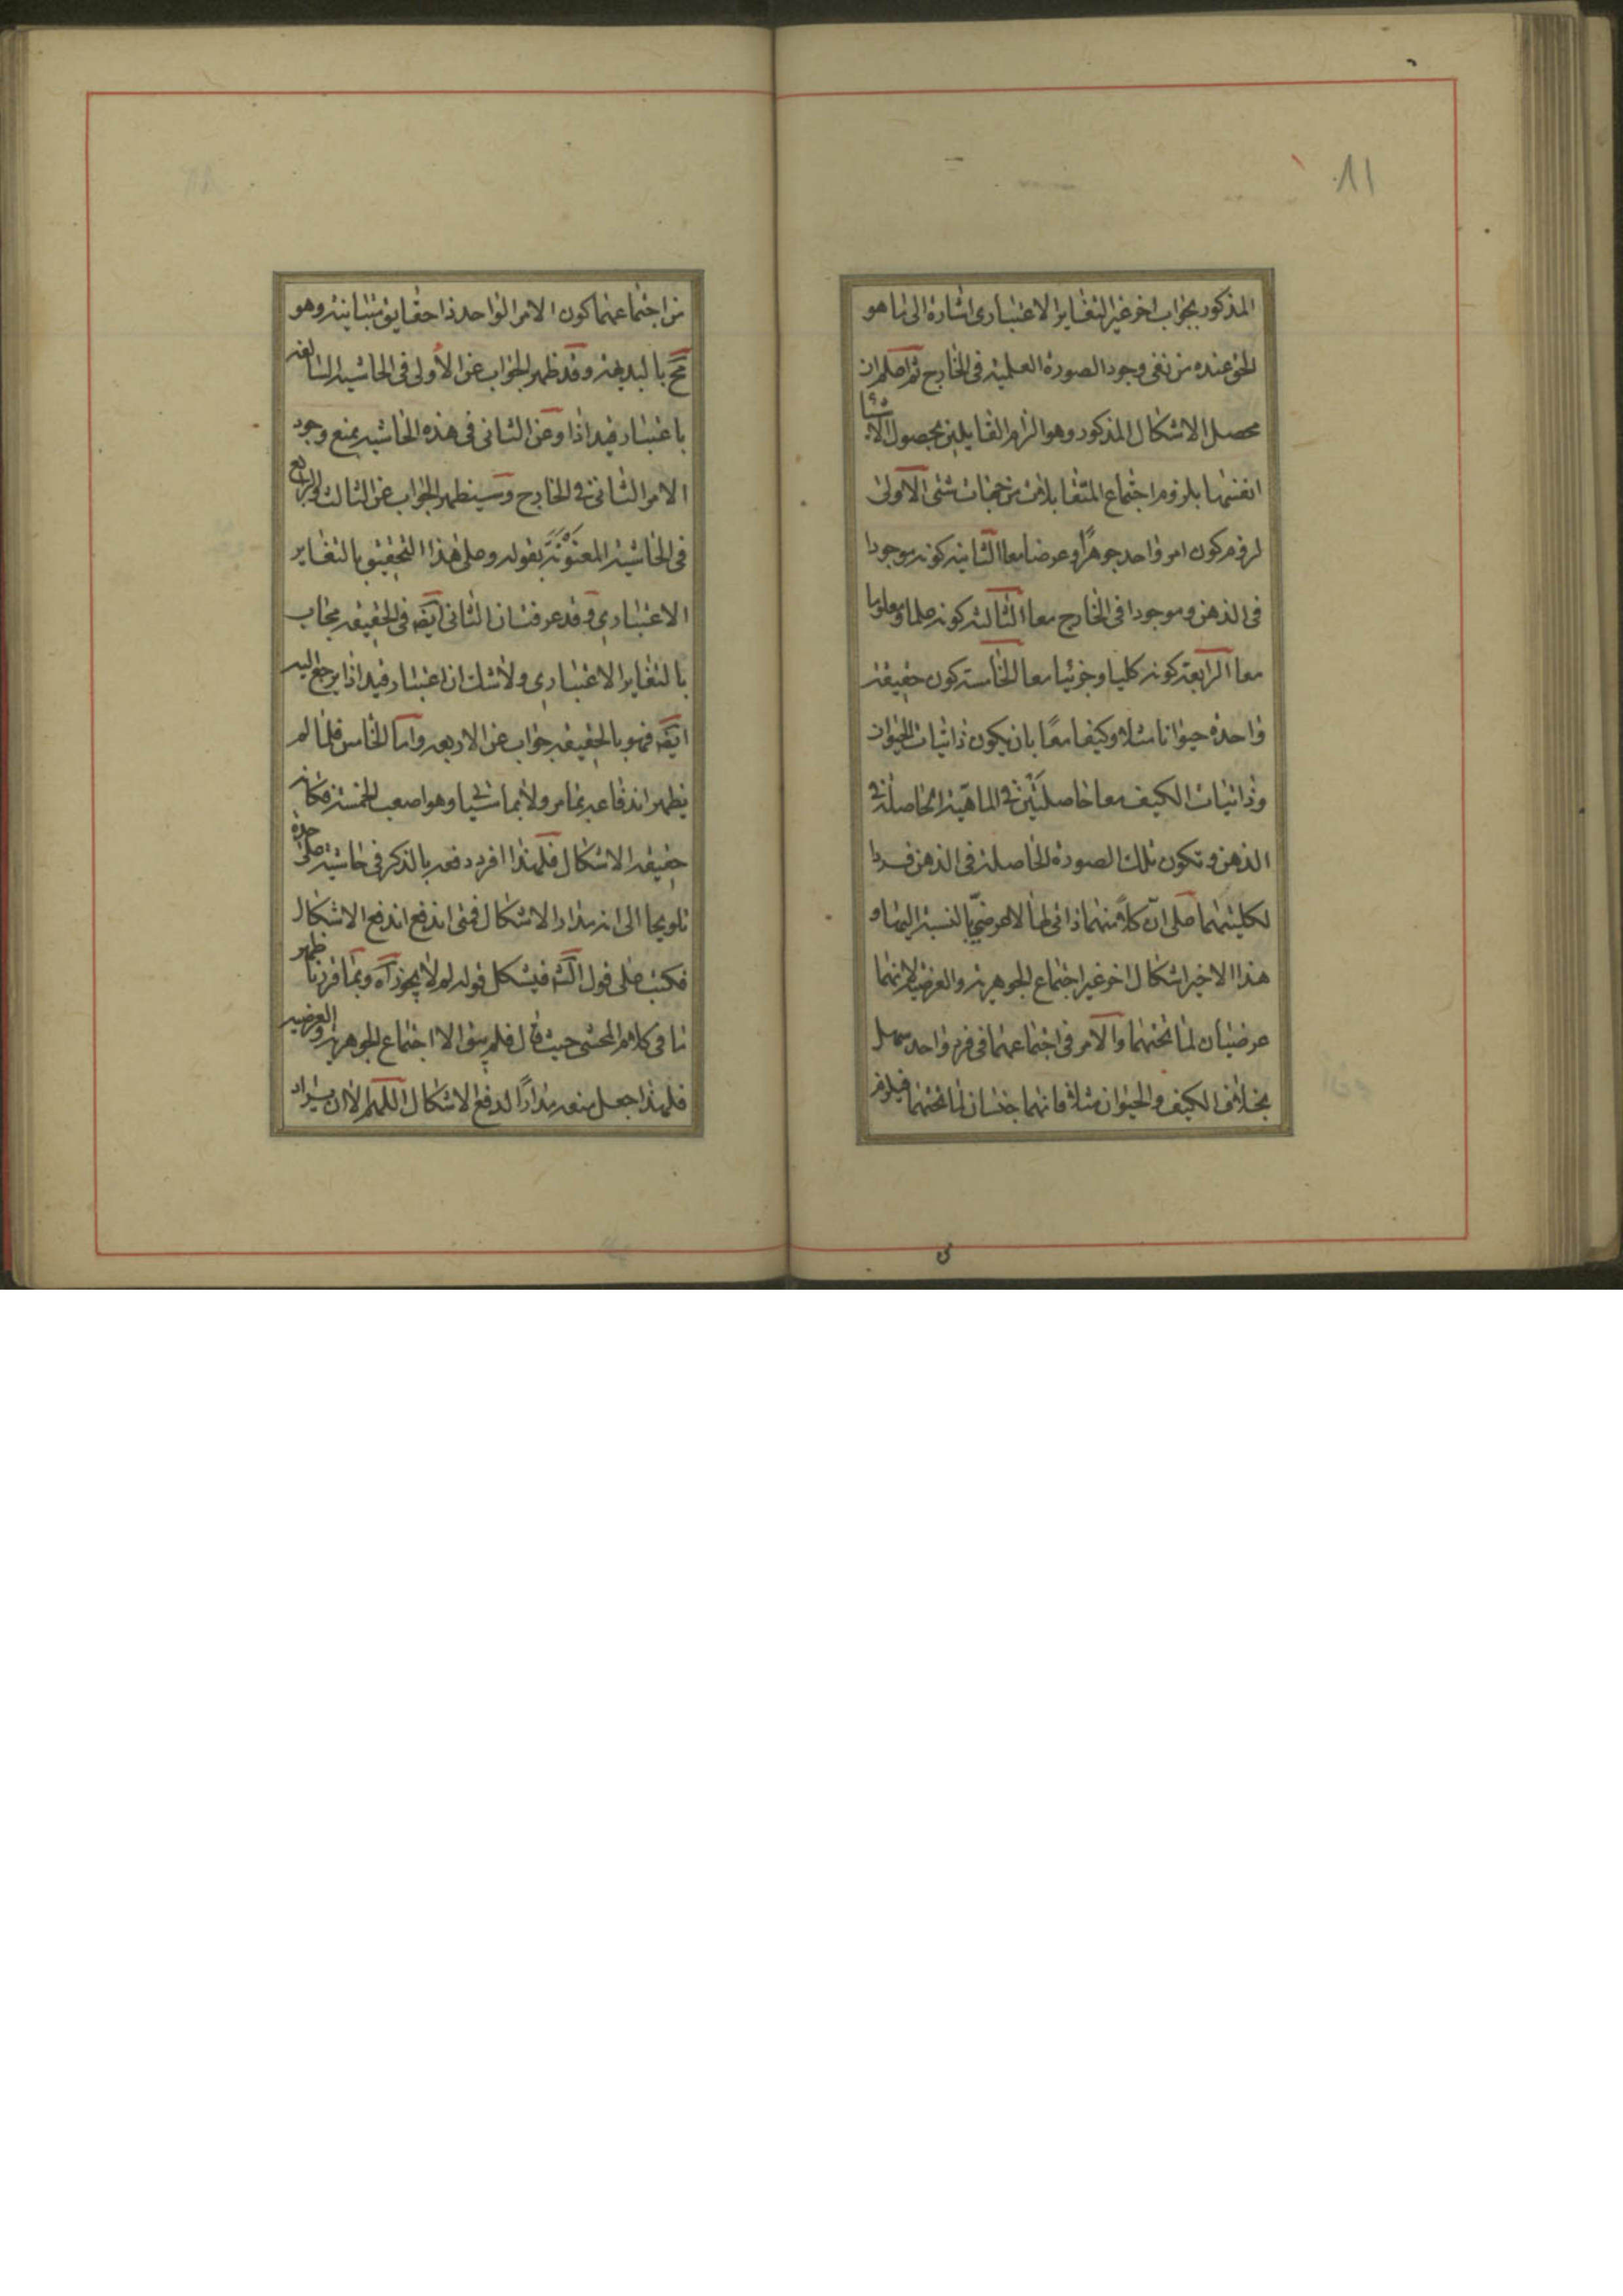 ١٨
المذكور بجواب اخر غير التغاير الاعتبارى اشارة الى ما هو
الحق عنده من نفى وجود الصورة العلمية فى الخارج ثم اعلم ان
محصل الاشكال المذكور وهو الزام القايلين بحصول الاشيا
انفسها بلزوم اجتماع المتقابلات من جهات شتى الاولى
لزوم كون امر واحد جوهرًا وعرضا معا الثانية كونه موجودا
فى الذهن وموجودا فى الخارج معا الثالثة كونه علما ومعلوما
معا الرابعة كونه كليا وجزئيا معا الخامسة كون حقيقة
واحدة حيوانا مثلا وكيفا معًا بان يكون ذاتيات الحيوان
وذاتيات الكيف معا حاصلتين فى الماهية الحاصلة فى
الذهن وتكون تلك الصورة الحاصلة فى الذهن فردا
لكليتهما على ان كلا منهما ذاتى لها لا عرضى بالنسبة اليها و
هذا الاخير اشكال اخر غير اجتماع الجوهرية والعرضية لانهما
عرضيان لما تحتهما والامر فى اجتماعهما فى فرد واحد سهل
بخلاف الكيف والحيوان مثلا فانهما جنسان لما تحتهما فيلزم
من اجتماعهما كون الامر الواحد ذا حقايق متباينة وهو
مح بالبديهة وقد ظهر الجواب عن الاولى فى الحاشية السابقة
باعتبار قيد اذا وعن الثانى فى هذه الحاشية بمنع وجود
الامر الثانى فى الخارج وسيظهر الجواب عن الثالث والرابع
فى الحاشية المعنونة بقوله وعلى هذا التحقيق بالتغاير
الاعتبارى وقد عرفت ان الثانى ايضه فى الحقيقة مجاب
بالتغاير الاعتبارى ولا شك ان اعتبار قيد اذا يرجع اليه
ايضه فهو بالحقيقة جواب عن الاربعة واما الخامس فلما لم
يظهر اندفاعه بما مر ولا بما سيأتى وهو اصعب الخمسة فكانه
حقيقة الاشكال فلهذا افرد دفعه بالذكر فى حاشية على حدة
تلويحا الى انه مدار الاشكال فمتى اندفع اندفع الاشكال
فكتب على قول الشه فيشكل قوله لم لا يجوز آه وبما قررنا ظهر
ما فى كلام المحشى حيث قال فلم يبق الا اجتماع الجوهرية والعرضية
فلهذا جعل منعه مدارًا لدفع الاشكال اللهم الا ان يراد